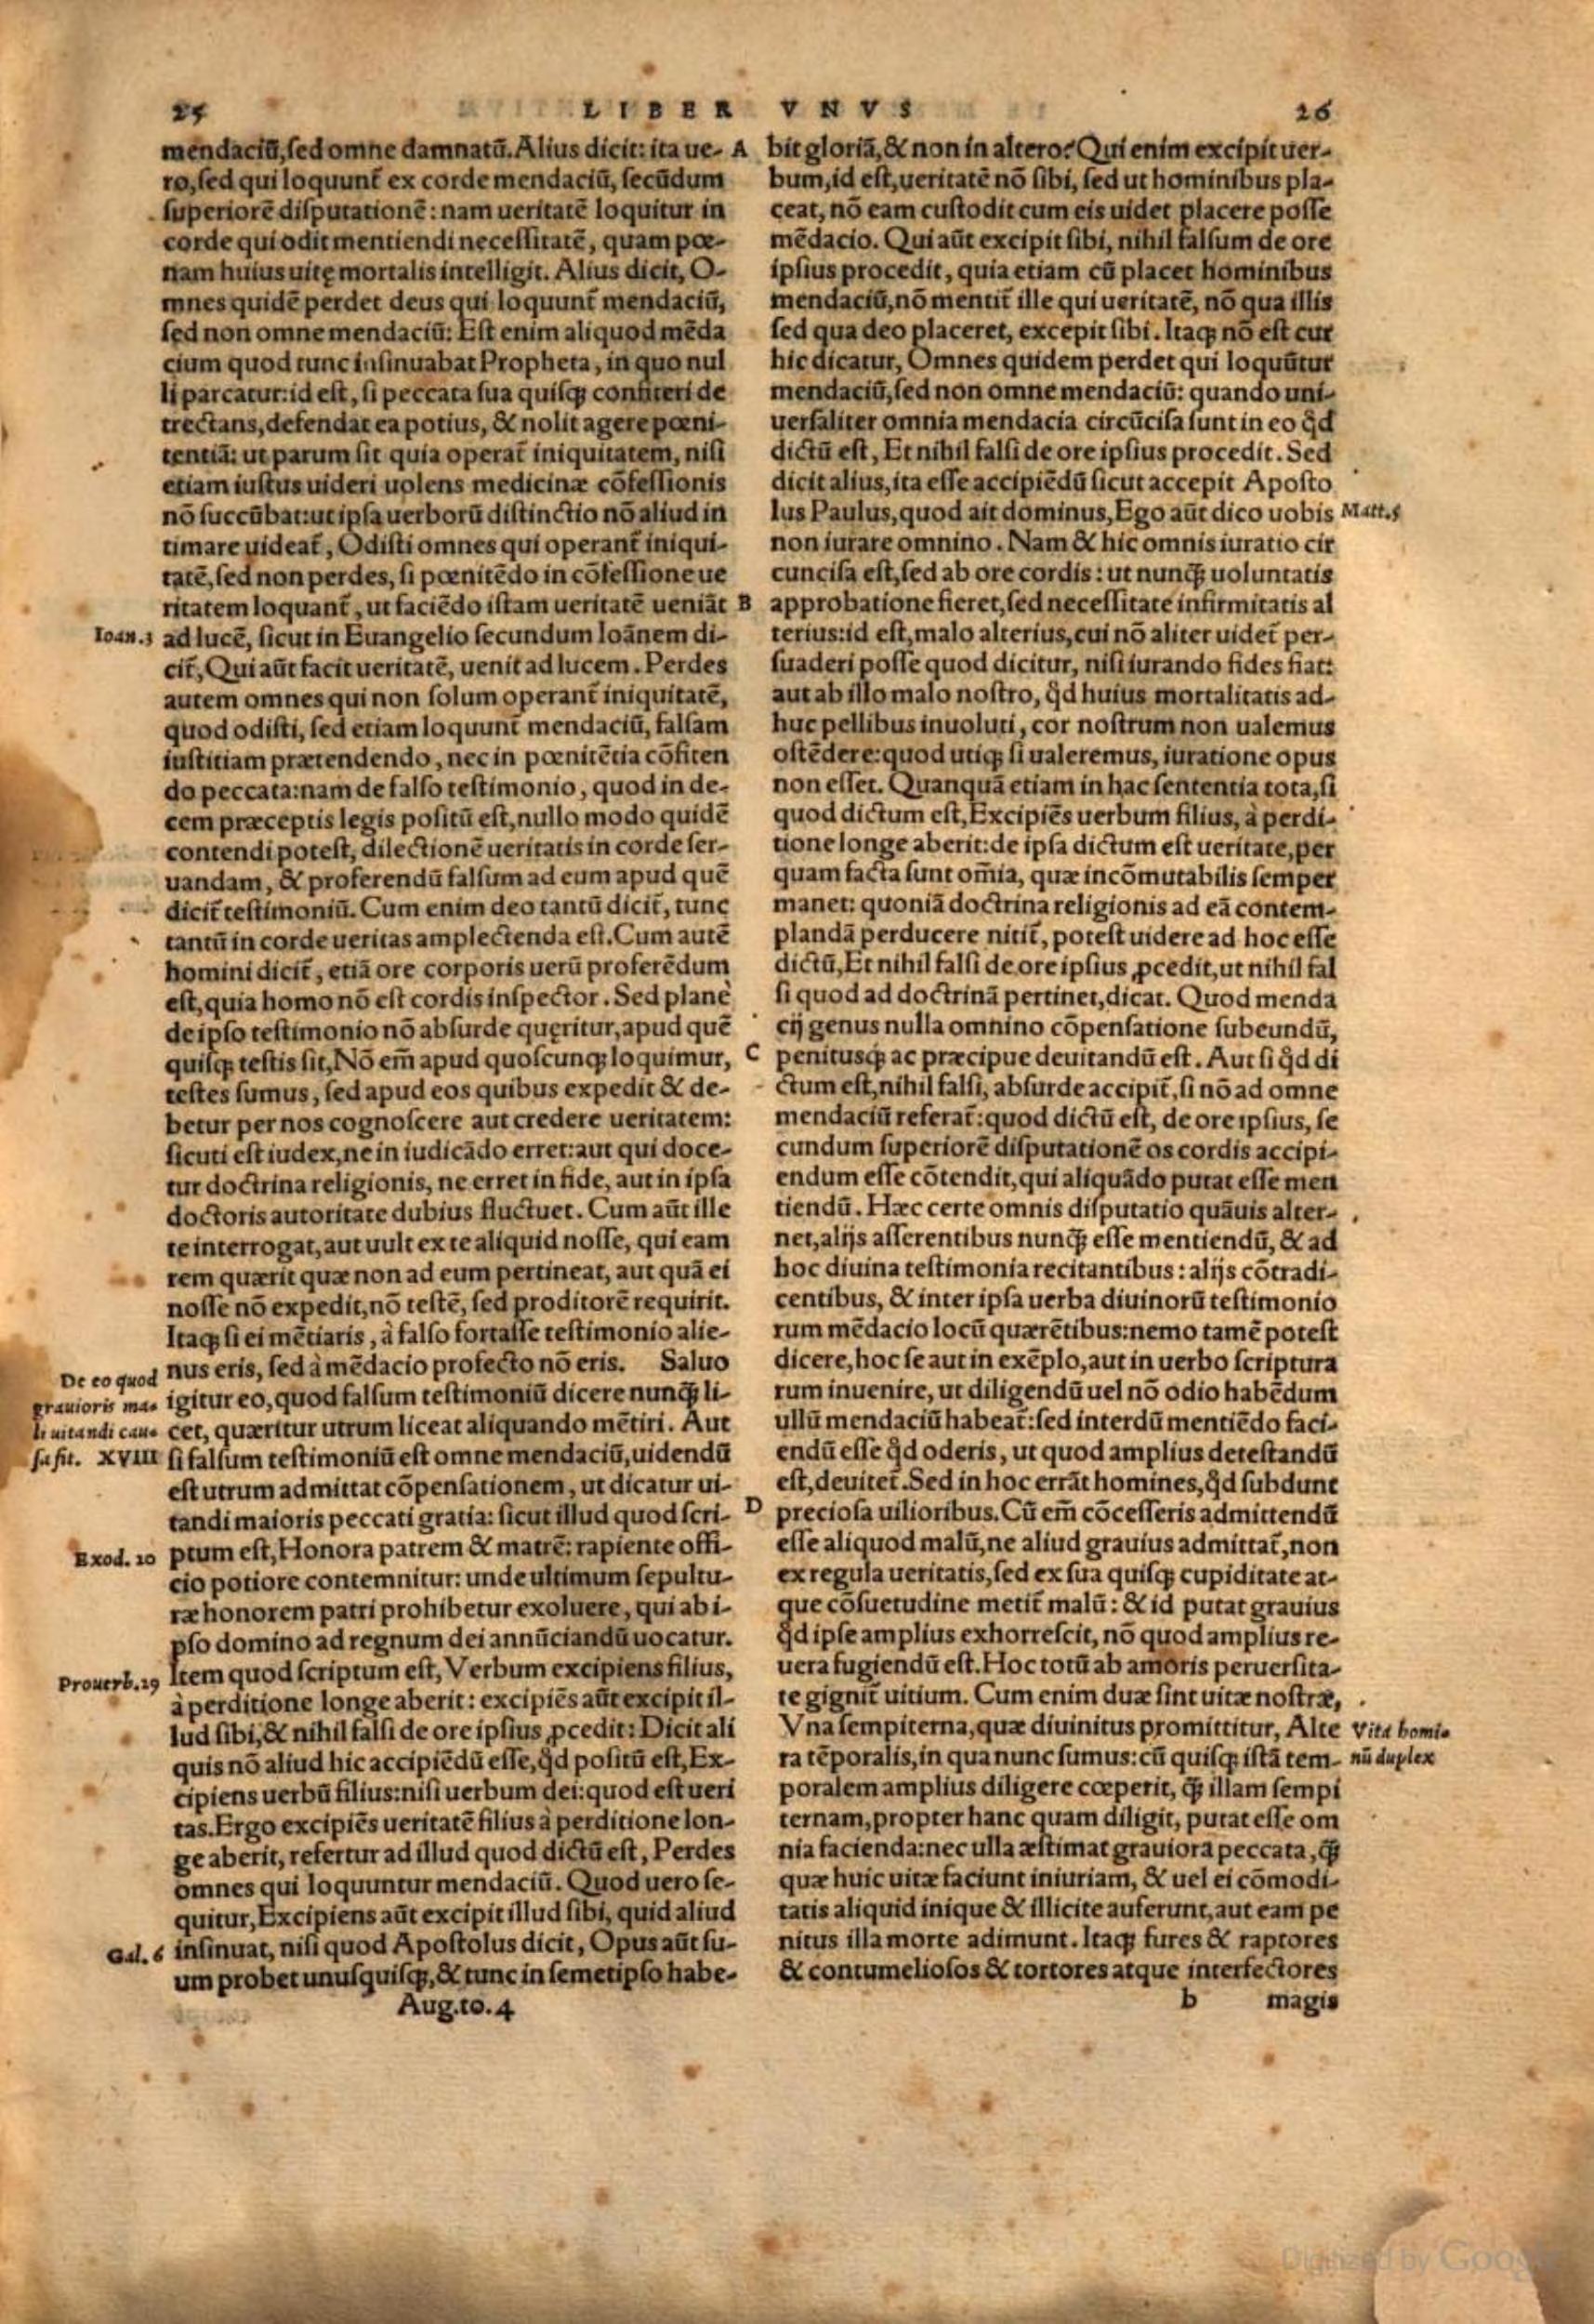 25 LIBER VNVS 26
mendaciū, sed omne damnatū. Alius dicit: ita ue- A
ro, sed qui loquunt̃ ex corde mendaciū, secūdum
superiorē disputationē: nam ueritatē loquitur in
corde qui odit mentiendi necessitatē, quam pœ-
nam huius uitę mortalis intelligit. Alius dicit, O-
mnes quidē perdet deus qui loquunt̃ mendaciū,
sed non omne mendaciū: Est enim aliquod mēda
cium quod tunc insinuabat Propheta, in quo nul
li parcatur: id est, si peccata sua quisq; confiteri de
trectans, defendat ea potius, & nolit agere pœni-
tentiā: ut parum sit quia operat̃ iniquitatem, nisi
etiam iustus uideri uolens medicinæ cōfessionis
nō succūbat: ut ipsa uerborū distinctio nō aliud in
timare uideat̃, Odisti omnes qui operant̃ iniqui-
tatē, sed non perdes, si pœnitēdo in cōfessione ue
ritatem loquant̃, ut faciēdo istam ueritatē ueniāt B
Ioan.3 ad lucē, sicut in Euangelio secundum Ioānem di-
cit̃, Qui aūt facit ueritatē, uenit ad lucem. Perdes
autem omnes qui non solum operant̃ iniquitatē,
quod odisti, sed etiam loquunt̃ mendaciū, falsam
iustitiam prætendendo, nec in pœnitētia cōfiten
do peccata: nam de falso testimonio, quod in de-
cem præceptis legis positū est, nullo modo quidē
contendi potest, dilectionē ueritatis in corde ser-
uandam, & proferendū falsum ad eum apud quē
dicit̃ testimoniū. Cum enim deo tantū dicit̃, tunc
tantū in corde ueritas amplectenda est. Cum autē
homini dicit̃, etiā ore corporis uerū proferēdum
est, quia homo nō est cordis inspector. Sed planè
de ipso testimonio nō absurde quęritur, apud quē
quisq; testis sit, Nō em̄ apud quoscunq; loquimur, C
testes sumus, sed apud eos quibus expedit & de-
betur per nos cognoscere aut credere ueritatem:
sicuti est iudex, ne in iudicādo erret: aut qui doce-
tur doctrina religionis, ne erret in fide, aut in ipsa
doctoris autoritate dubius fluctuet. Cum aūt ille
te interrogat, aut uult ex te aliquid nosse, qui eam
rem quærit quæ non ad eum pertineat, aut quā ei
nosse nō expedit, nō testē, sed proditorē requirit.
Itaq; si ei mētiaris, à falso fortasse testimonio alie-
De eo quod nus eris, sed à mēdacio profecto nō eris. Saluo
grauioris ma- igitur eo, quod falsum testimoniū dicere nunq̃ li-
li uitandi cau- cet, quæritur utrum liceat aliquando mētiri. Aut
sa sit. XVIII si falsum testimoniū est omne mendaciū, uidendū
est utrum admittat cōpensationem, ut dicatur ui-
tandi maioris peccati gratia: sicut illud quod scri- D
Exod. 20 ptum est, Honora patrem & matrē: rapiente offi-
cio potiore contemnitur: unde ultimum sepultu-
ræ honorem patri prohibetur exoluere, qui ab i-
pso domino ad regnum dei annūciandū uocatur.
Prouerb.29 Item quod scriptum est, Verbum excipiens filius,
à perditione longe aberit: excipiēs aūt excipit il-
lud sibi, & nihil falsi de ore ipsius ꝓcedit: Dicit ali
quis nō aliud hic accipiēdū esse, q̃d positū est, Ex-
cipiens uerbū filius: nisi uerbum dei: quod est ueri
tas. Ergo excipiēs ueritatē filius à perditione lon-
ge aberit, refertur ad illud quod dictū est, Perdes
omnes qui loquuntur mendaciū. Quod uero se-
quitur, Excipiens aūt excipit illud sibi, quid aliud
Gal. 6 insinuat, nisi quod Apostolus dicit, Opus aūt su-
um probet unusquisq;, & tunc in semetipso habe-
Aug. to. 4
bit gloriā, & non in altero? Qui enim excipit uer-
bum, id est, ueritatē nō sibi, sed ut hominibus pla-
ceat, nō eam custodit cum eis uidet placere posse
mēdacio. Qui aūt excipit sibi, nihil falsum de ore
ipsius procedit, quia etiam cū placet hominibus
mendaciū, nō mentit̃ ille qui ueritatē, nō qua illis
sed qua deo placeret, excepit sibi. Itaq; nō est cur
hic dicatur, Omnes quidem perdet qui loquūtur
mendaciū, sed non omne mendaciū: quando uni-
uersaliter omnia mendacia circūcisa sunt in eo q̃d
dictū est, Et nihil falsi de ore ipsius procedit. Sed
dicit alius, ita esse accipiēdū sicut accepit Aposto
lus Paulus, quod ait dominus, Ego aūt dico uobis Matt.5
non iurare omnino. Nam & hic omnis iuratio cir
cuncisa est, sed ab ore cordis: ut nunq̃ uoluntatis
approbatione fieret, sed necessitate infirmitatis al
terius: id est, malo alterius, cui nō aliter uidet̃ per-
suaderi posse quod dicitur, nisi iurando fides fiat:
aut ab illo malo nostro, q̃d huius mortalitatis ad-
huc pellibus inuoluti, cor nostrum non ualemus
ostēdere: quod utiq; si ualeremus, iuratione opus
non esset. Quanquā etiam in hac sententia tota, si
quod dictum est, Excipiēs uerbum filius, à perdi-
tione longe aberit: de ipsa dictum est ueritate, per
quam facta sunt om̄ia, quæ incōmutabilis semper
manet: quoniā doctrina religionis ad eā contem-
plandā perducere nitit̃, potest uidere ad hoc esse
dictū, Et nihil falsi de ore ipsius ꝓcedit, ut nihil fal
si quod ad doctrinā pertinet, dicat. Quod menda
cij genus nulla omnino cōpensatione subeundū,
penitusq; ac præcipue deuitandū est. Aut si q̃d di
ctum est, nihil falsi, absurde accipit̃, si nō ad omne
mendaciū referat̃: quod dictū est, de ore ipsius, se
cundum superiorē disputationē os cordis accipi-
endum esse cōtendit, qui aliquādo putat esse men
tiendū. Hæc certe omnis disputatio quāuis alter-
net, alijs asserentibus nunq̃ esse mentiendū, & ad
hoc diuina testimonia recitantibus: alijs cōtradi-
centibus, & inter ipsa uerba diuinorū testimonio
rum mēdacio locū quærētibus: nemo tamē potest
dicere, hoc se aut in exēplo, aut in uerbo scriptura
rum inuenire, ut diligendū uel nō odio habēdum
ullū mendaciū habeat̃: sed interdū mentiēdo faci-
endū esse q̃d oderis, ut quod amplius detestandū
est, deuitet̃. Sed in hoc errāt homines, q̃d subdunt
preciosa uilioribus. Cū em̄ cōcesseris admittendū
esse aliquod malū, ne aliud grauius admittat̃, non
ex regula ueritatis, sed ex sua quisq; cupiditate at-
que cōsuetudine metit̃ malū: & id putat grauius
q̃d ipse amplius exhorrescit, nō quod amplius re-
uera fugiendū est. Hoc totū ab amoris peruersita-
te gignit̃ uitium. Cum enim duæ sint uitæ nostræ,
Vna sempiterna, quæ diuinitus promittitur, Alte Vita homi-
ra tēporalis, in qua nunc sumus: cū quisq; istā tem- nū duplex
poralem amplius diligere cœperit, q̃ illam sempi
ternam, propter hanc quam diligit, putat esse om
nia facienda: nec ulla æstimat grauiora peccata, q̃
quæ huic uitæ faciunt iniuriam, & uel ei cōmodi-
tatis aliquid inique & illicite auferunt, aut eam pe
nitus illa morte adimunt. Itaq; fures & raptores
& contumeliosos & tortores atque interfectores
b magis
Digitized by Google